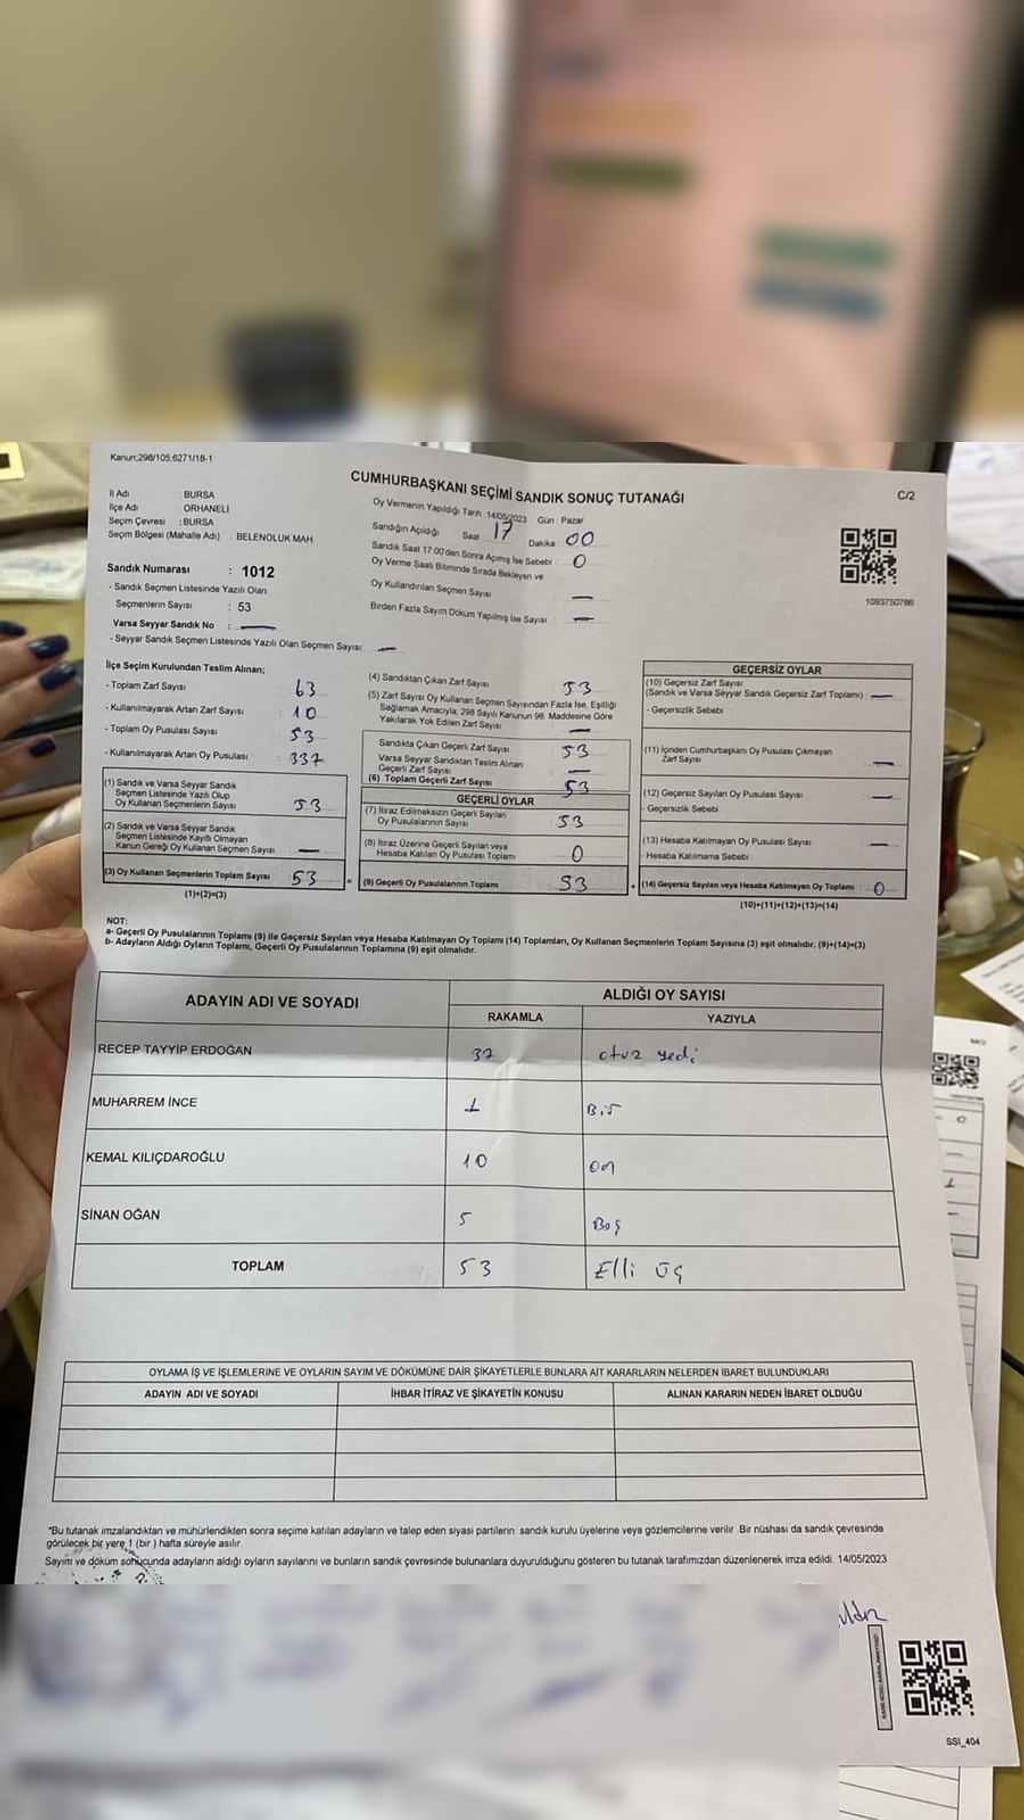 Kanun:298/105,6271/18-1
C/2
CUMHURBAŞKANI SEÇİMİ SANDIK SONUÇ TUTANAĞI
İl Adı BURSA
İlçe Adı ORHANELİ
Seçim Çevresi : BURSA
Seçim Bölgesi (Mahalle Adı) : BELENOLUK MAH
Sandık Numarası : 1012
- Sandık Seçmen Listesinde Yazılı Olan
Seçmenlerin Sayısı : 53
Varsa Seyyar Sandık No : —
- Seyyar Sandık Seçmen Listesinde Yazılı Olan Seçmen Sayısı: —
Oy Vermenin Yapıldığı Tarih :14/05/2023 Gün : Pazar
Sandığın Açıldığı Saat 17 Dakika 00
Sandık Saat 17:00'den Sonra Açılmış İse Sebebi : 0
Oy Verme Saati Bitiminde Sırada Bekleyen ve
Oy Kullandırılan Seçmen Sayısı —
Birden Fazla Sayım Döküm Yapılmış İse Sayısı —
1093750786
İlçe Seçim Kurulundan Teslim Alınan;
- Toplam Zarf Sayısı 63
- Kullanılmayarak Artan Zarf Sayısı : 10
- Toplam Oy Pusulası Sayısı : 53
- Kullanılmayarak Artan Oy Pusulası : 337
(1) Sandık ve Varsa Seyyar Sandık
Seçmen Listesinde Yazılı Olup
Oy Kullanan Seçmenlerin Sayısı 53
(2) Sandık ve Varsa Seyyar Sandık
Seçmen Listesinde Kayıtlı Olmayan
Kanun Gereği Oy Kullanan Seçmen Sayısı —
(3) Oy Kullanan Seçmenlerin Toplam Sayısı 53
(1)+(2)=(3)
(4) Sandıktan Çıkan Zarf Sayısı 53
(5) Zarf Sayısı Oy Kullanan Seçmen Sayısından Fazla İse, Eşitliği
Sağlamak Amacıyla; 298 Sayılı Kanunun 98. Maddesine Göre
Yakılarak Yok Edilen Zarf Sayısı —
Sandıkta Çıkan Geçerli Zarf Sayısı 53
Varsa Seyyar Sandıktan Teslim Alınan
Geçerli Zarf Sayısı —
(6) Toplam Geçerli Zarf Sayısı 53
GEÇERLİ OYLAR
(7) İtiraz Edilmeksizin Geçerli Sayılan
Oy Pusulalarının Sayısı 53
(8) İtiraz Üzerine Geçerli Sayılan veya
Hesaba Katılan Oy Pusulası Toplamı 0
(9) Geçerli Oy Pusulalarının Toplamı 53
GEÇERSİZ OYLAR
(10) Geçersiz Zarf Sayısı
(Sandık ve Varsa Seyyar Sandık Geçersiz Zarf Toplamı) : —
- Geçersizlik Sebebi
(11) İçinden Cumhurbaşkanı Oy Pusulası Çıkmayan
Zarf Sayısı —
(12) Geçersiz Sayılan Oy Pusulası Sayısı —
- Geçersizlik Sebebi
(13) Hesaba Katılmayan Oy Pusulası Sayısı —
- Hesaba Katılmama Sebebi
(14) Geçersiz Sayılan veya Hesaba Katılmayan Oy Toplamı : 0
(10)+(11)+(12)+(13)=(14)
NOT:
a- Geçerli Oy Pusulalarının Toplamı (9) ile Geçersiz Sayılan veya Hesaba Katılmayan Oy Toplamı (14) Toplamları, Oy Kullanan Seçmenlerin Toplam Sayısına (3) eşit olmalıdır. (9)+(14)=(3)
b- Adayların Aldığı Oyların Toplamı, Geçerli Oy Pusulalarının Toplamına (9) eşit olmalıdır.
ADAYIN ADI VE SOYADI ALDIĞI OY SAYISI
RAKAMLA YAZIYLA
RECEP TAYYİP ERDOĞAN 37 otuz yedi
MUHARREM İNCE 1 Bir
KEMAL KILIÇDAROĞLU 10 on
SİNAN OĞAN 5 Boş
TOPLAM 53 Elli üç
OYLAMA İŞ VE İŞLEMLERİNE VE OYLARIN SAYIM VE DÖKÜMÜNE DAİR ŞİKAYETLERLE BUNLARA AİT KARARLARIN NELERDEN İBARET BULUNDUKLARI
ADAYIN ADI VE SOYADI İHBAR İTİRAZ VE ŞİKAYETİN KONUSU ALINAN KARARIN NEDEN İBARET OLDUĞU
*Bu tutanak imzalandıktan ve mühürlendikten sonra seçime katılan adayların ve talep eden siyasi partilerin sandık kurulu üyelerine veya gözlemcilerine verilir. Bir nüshası da sandık çevresinde
görülecek bir yere 1 (bir) hafta süreyle asılır.
Sayım ve döküm sonucunda adayların aldığı oyların sayılarını ve bunların sandık çevresinde bulunanlara duyurulduğunu gösteren bu tutanak tarafımızdan düzenlenerek imza edildi. 14/05/2023
SSI_404